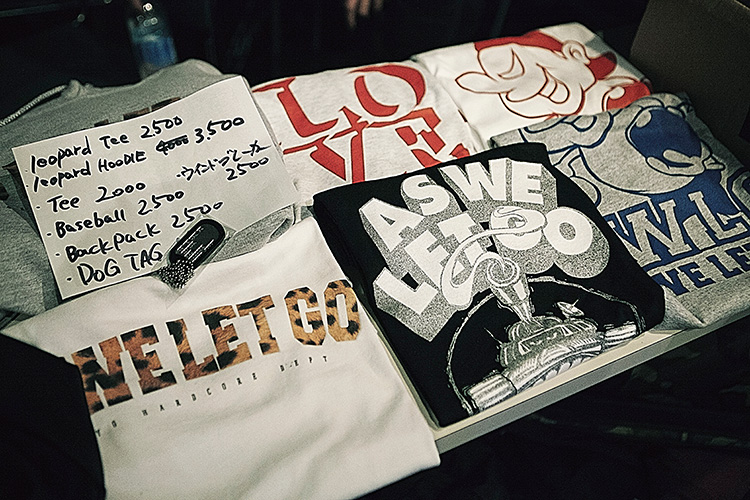 leopard Tee 2500
leopard HOODIE 4000 3,500
・Tee 2000
・ウインドブレーカー
2500
・Baseball 2500
・BackPack 2500
・DOG TAG
LO
VE
AS WE
LET GO
WE LET GO
TO HARDCORE DEPT
AWL
WE LET